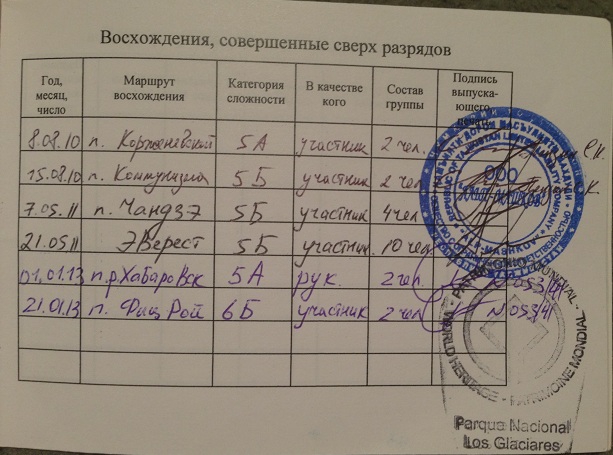 Восхождения, совершенные сверх разрядов
Год, месяц, число Маршрут восхождения Категория сложности В качестве кого Состав группы Подпись выпускающего
8.08.10 п. Корженевской 5А участник 2 чел.
15.08.10 п. Коммунизма 5Б участник 2 чел
7.05.11 п. Чангзэ 5Б участник 4 чел
21.05.11 Эверест 5Б участник 10 чел
01.01.13 Хабаровск 5А рук. 2 чел N 053/41
21.01.13 п. Фиц Рой 6Б участник 2 чел N 053/41
ООО
WORLD HERITAGE - PATRIMOINE MONDIAL
Parque Nacional
Los Glaciares